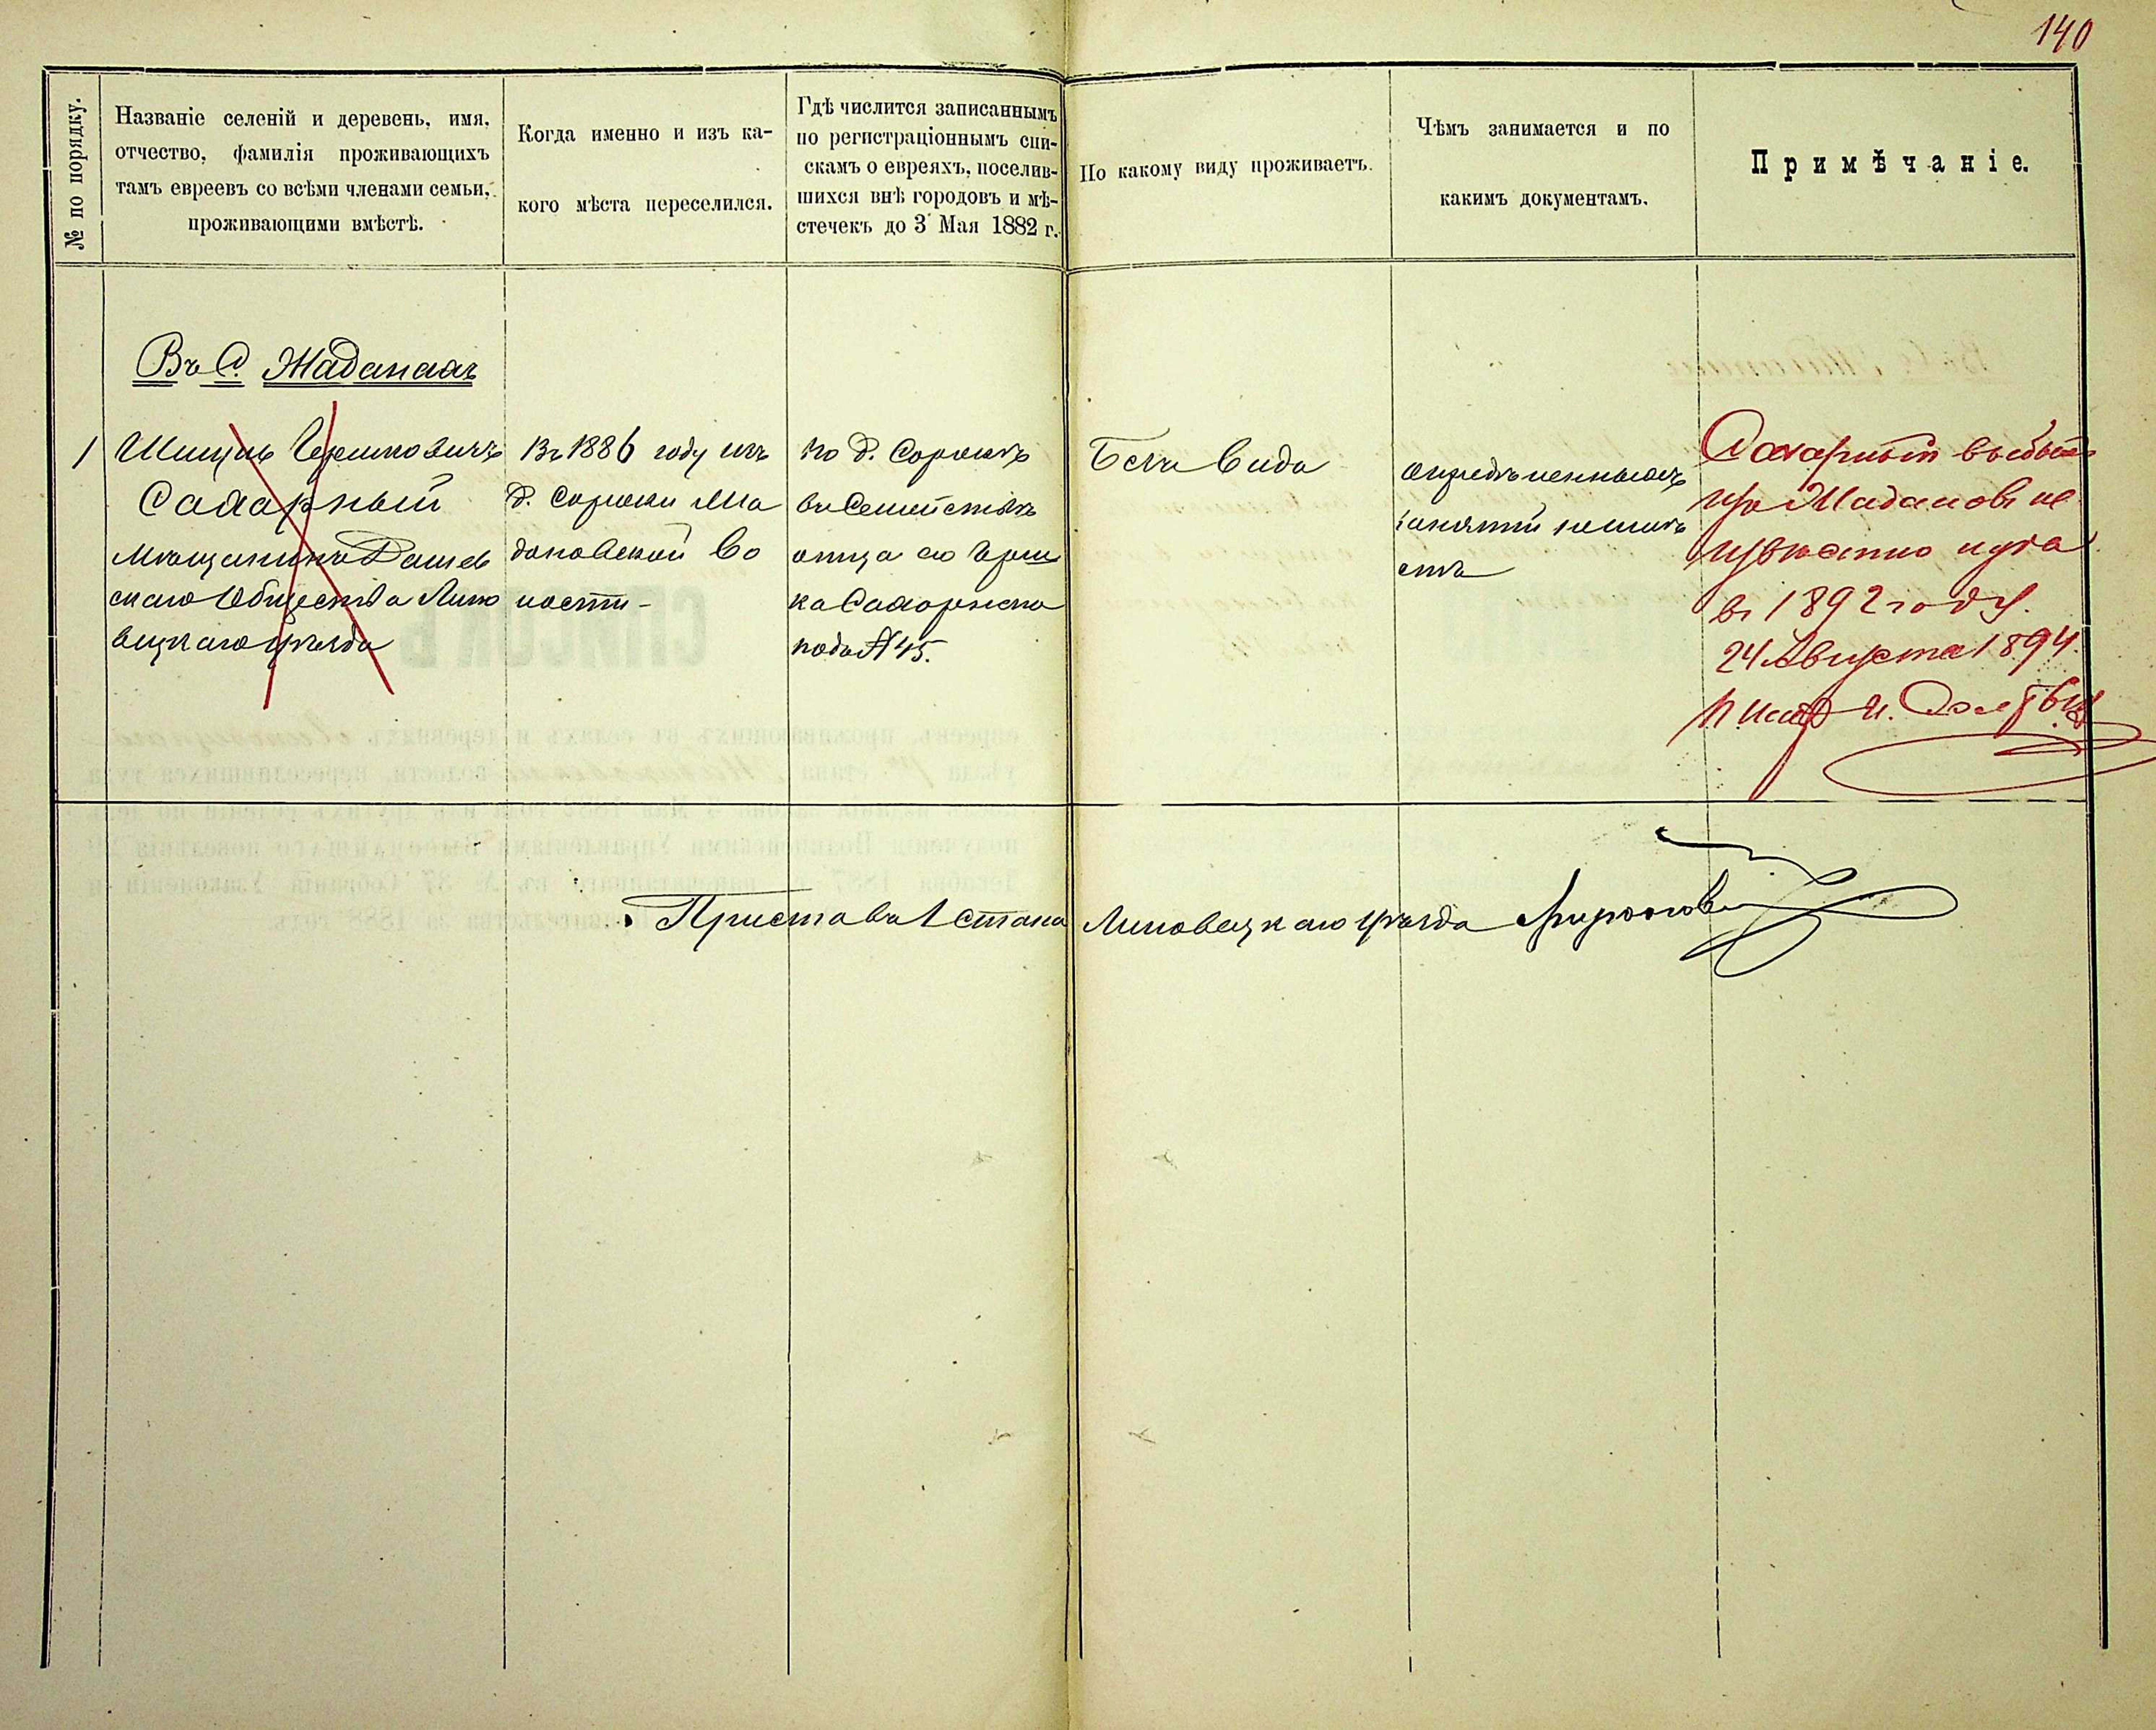 140
№ по порядку.
Названіе селеній и деревень, имя,
отчество, фамилія проживающихъ
тамъ евреевъ со всѣми членами семьи,
проживающими вмѣстѣ.
Когда именно и изъ ка-
кого мѣста переселился.
Гдѣ числится записаннымъ
по регистраціоннымъ спи-
скамъ о евреяхъ, поселив-
шихся внѣ городовъ и мѣ-
стечекъ до 3 Мая 1882 г.
По какому виду проживаетъ.
Чѣмъ занимается и по
какимъ документамъ.
Примѣчаніе.
Въ С. Жаданахъ
1
Гершковичъ
Сахарный
мѣщанинъ Дашев
скаго Общества Липо
вецкаго уѣзда
Въ 1886 году изъ
д. Сороки
довской во
лости -
по д. Сорокѣ
въ Семействѣ
отца его Герш
ка Сахарнаго
подъ № 45.
Безъ вида
опредѣленныхъ
занятій не имѣ
етъ
Сахарный выбылъ
изъ Жадановъ не
извѣстно куда
въ 1892 году.
24 Августа 1894.
Приставъ 1 стана Липовецкаго уѣзда